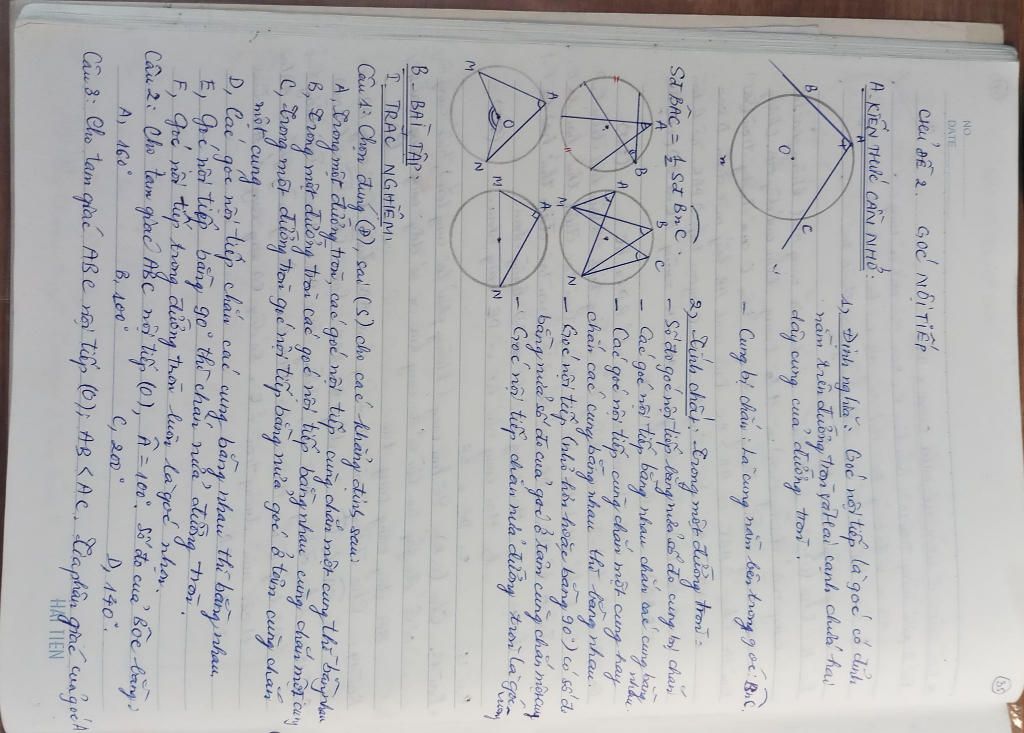 NO.
DATE
35
CHỦ ĐỀ 2. GÓC NỘI TIẾP
A. KIẾN THỨC CẦN NHỚ:
1, Định nghĩa: Góc nội tiếp là góc có đỉnh
nằm trên đường tròn và Hai cạnh chứa hai
dây cung của đường tròn.
- Cung bị chắn: là cung nằm bên trong góc: BnC.
A
B
O
C
n
Sđ BAC = 1/2 Sđ BnC.
2, Tính chất: Trong một đường tròn:
- Số đo góc nội tiếp bằng nửa số đo cung bị chắn
- Các góc nội tiếp bằng nhau chắn các cung bằng nhau.
- Các góc nội tiếp cùng chắn một cung hay
chắn các cung bằng nhau thì bằng nhau.
- Góc nội tiếp (nhỏ hơn hoặc bằng 90°) có số đo
bằng nửa số đo của góc ở tâm cùng chắn một cung
- Góc nội tiếp chắn nửa đường tròn là góc vuông
A
B
A
B
C
M
N
A
M
O
N
A
M
N
B - BÀI TẬP:
I. TRẮC NGHIỆM:
Câu 1: Chọn đúng (Đ), sai (S) cho các khẳng định sau:
A, Trong một đường tròn, các góc nội tiếp cùng chắn một cung thì bằng nhau
B, Trong một đường tròn các góc nội tiếp bằng nhau cùng chắn một cung
C, Trong một đường tròn góc nội tiếp bằng nửa góc ở tâm cùng chắn
một cung.
D, Các góc nội tiếp chắn các cung bằng nhau thì bằng nhau
E, Góc nội tiếp bằng 90° thì chắn nửa đường tròn.
F, Góc nội tiếp trong đường tròn luôn là góc nhọn.
Câu 2: Cho tam giác ABC nội tiếp (O), Â = 100°. Số đo của BOC bằng:
A, 160° B, 100° C, 200° D, 170°.
Câu 3: Cho tam giác ABC nội tiếp (O); AB < AC. Tia phân giác của góc A
HẢI TIẾN